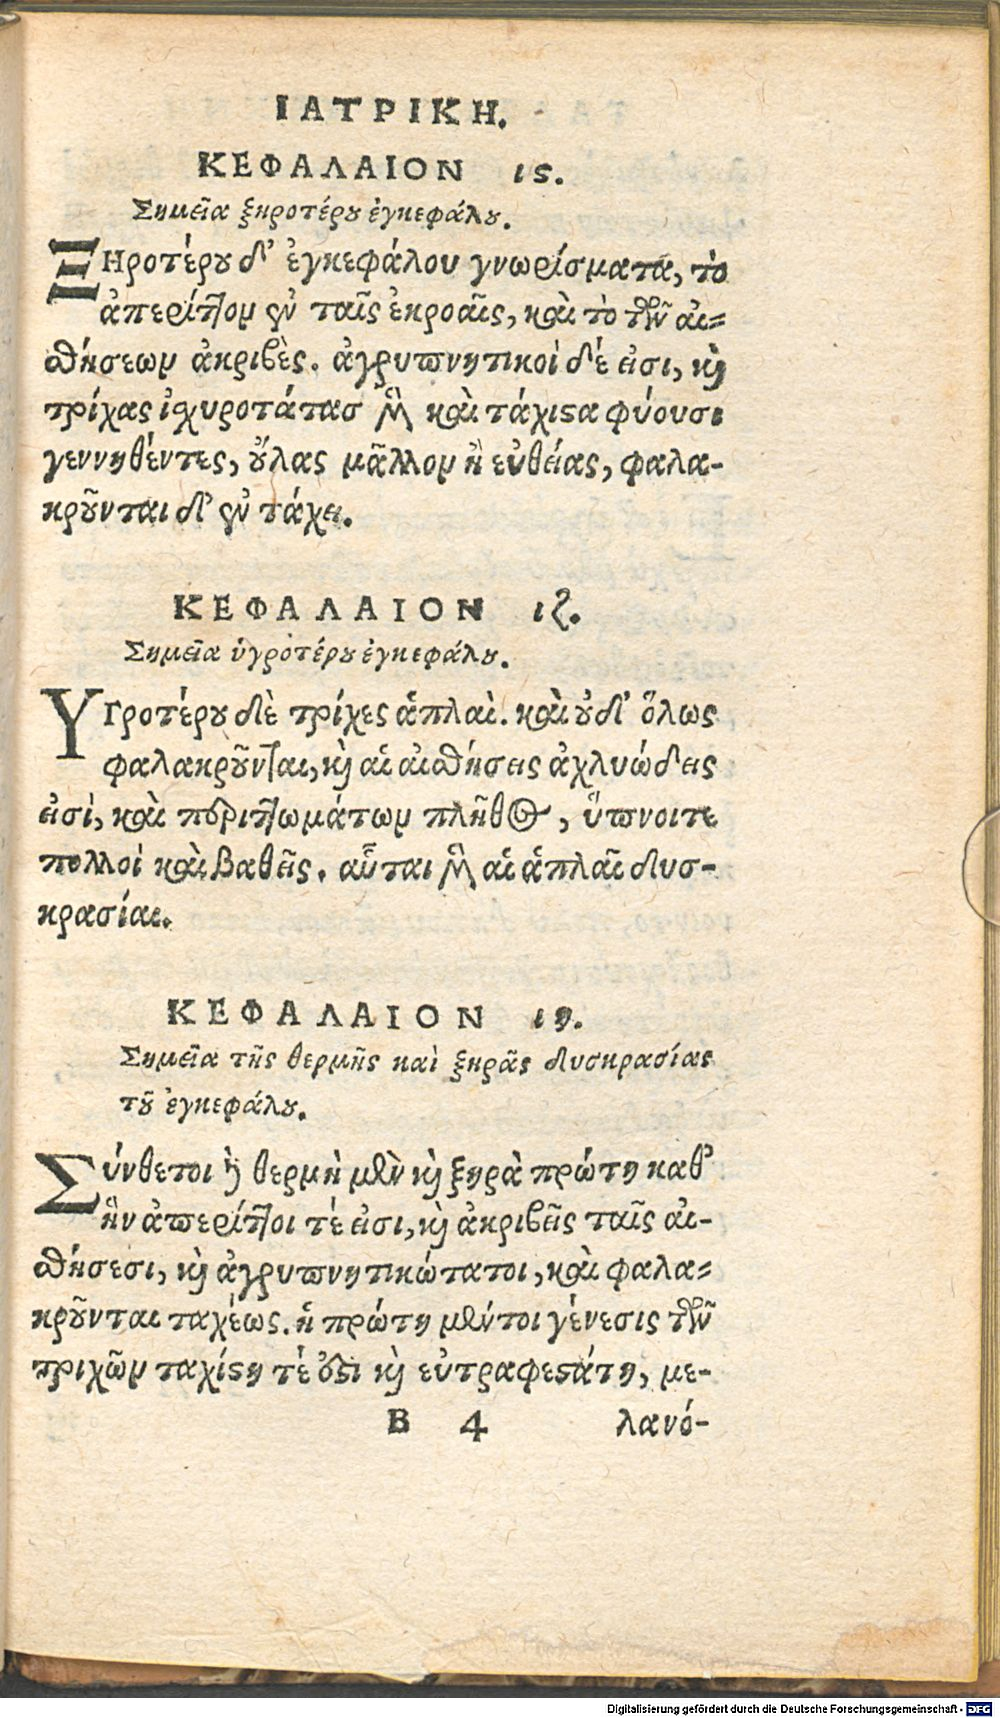 ΙΑΤΡΙΚΗ.
ΚΕΦΑΛΑΙΟΝ ις.
Σημεῖα ξηροτέρου ἐγκεφάλου.
ΞΗροτέρου δ' ἐγκεφάλου γνωρίσματα, τὸ
ἀπερίτττον ἐν ταῖς ἐκροαῖς, καὶ τὸ τῶν αἰ-
σθήσεων ἀκριβὲς. ἀγρυπνητικοὶ δέ εἰσι, καὶ
τρίχας ἰχυροτάτας δὲ καὶ τάχιστα φύουσι
γεννηθέντες, οὔλας μᾶλλον ἢ εὐθείας, φαλα-
κροῦνται δ' ἐν τάχει.
ΚΕΦΑΛΑΙΟΝ ιζ.
Σημεῖα ὑγροτέρου ἐγκεφάλου.
ΥΓροτέρου δὲ τρίχες ἁπλαὶ. καὶ οὐδ' ὅλως
φαλακροῦνται, καὶ αἱ αἰσθήσεις ἀχλυώδεις
εἰσὶ, καὶ περιττωμάτων πλῆθος, ὕπνοι τε
πολλοὶ καὶ βαθεῖς. αὗται δὲ αἱ ἁπλαῖ δυσ-
κρασίαι.
ΚΕΦΑΛΑΙΟΝ ιη.
Σημεῖα τῆς θερμῆς καὶ ξηρᾶς δυσκρασίας
τοῦ ἐγκεφάλου.
Σύνθετοι ἡ θερμὴ μὲν καὶ ξηρὰ πρώτη καθ'
ἣν ἀπερίττοι τέ εἰσι, καὶ ἀκριβεῖς ταῖς αἰ-
σθήσεσι, καὶ ἀγρυπνητικώτατοι, καὶ φαλα-
κροῦνται ταχέως. ἡ πρώτη μέντοι γένεσις τῶν
τριχῶν ταχίστη τέ ἐστι καὶ εὐτραφεστάτη, με-
Β 4 λανό-
Digitalisierung gefördert durch die Deutsche Forschungsgemeinschaft - DFG